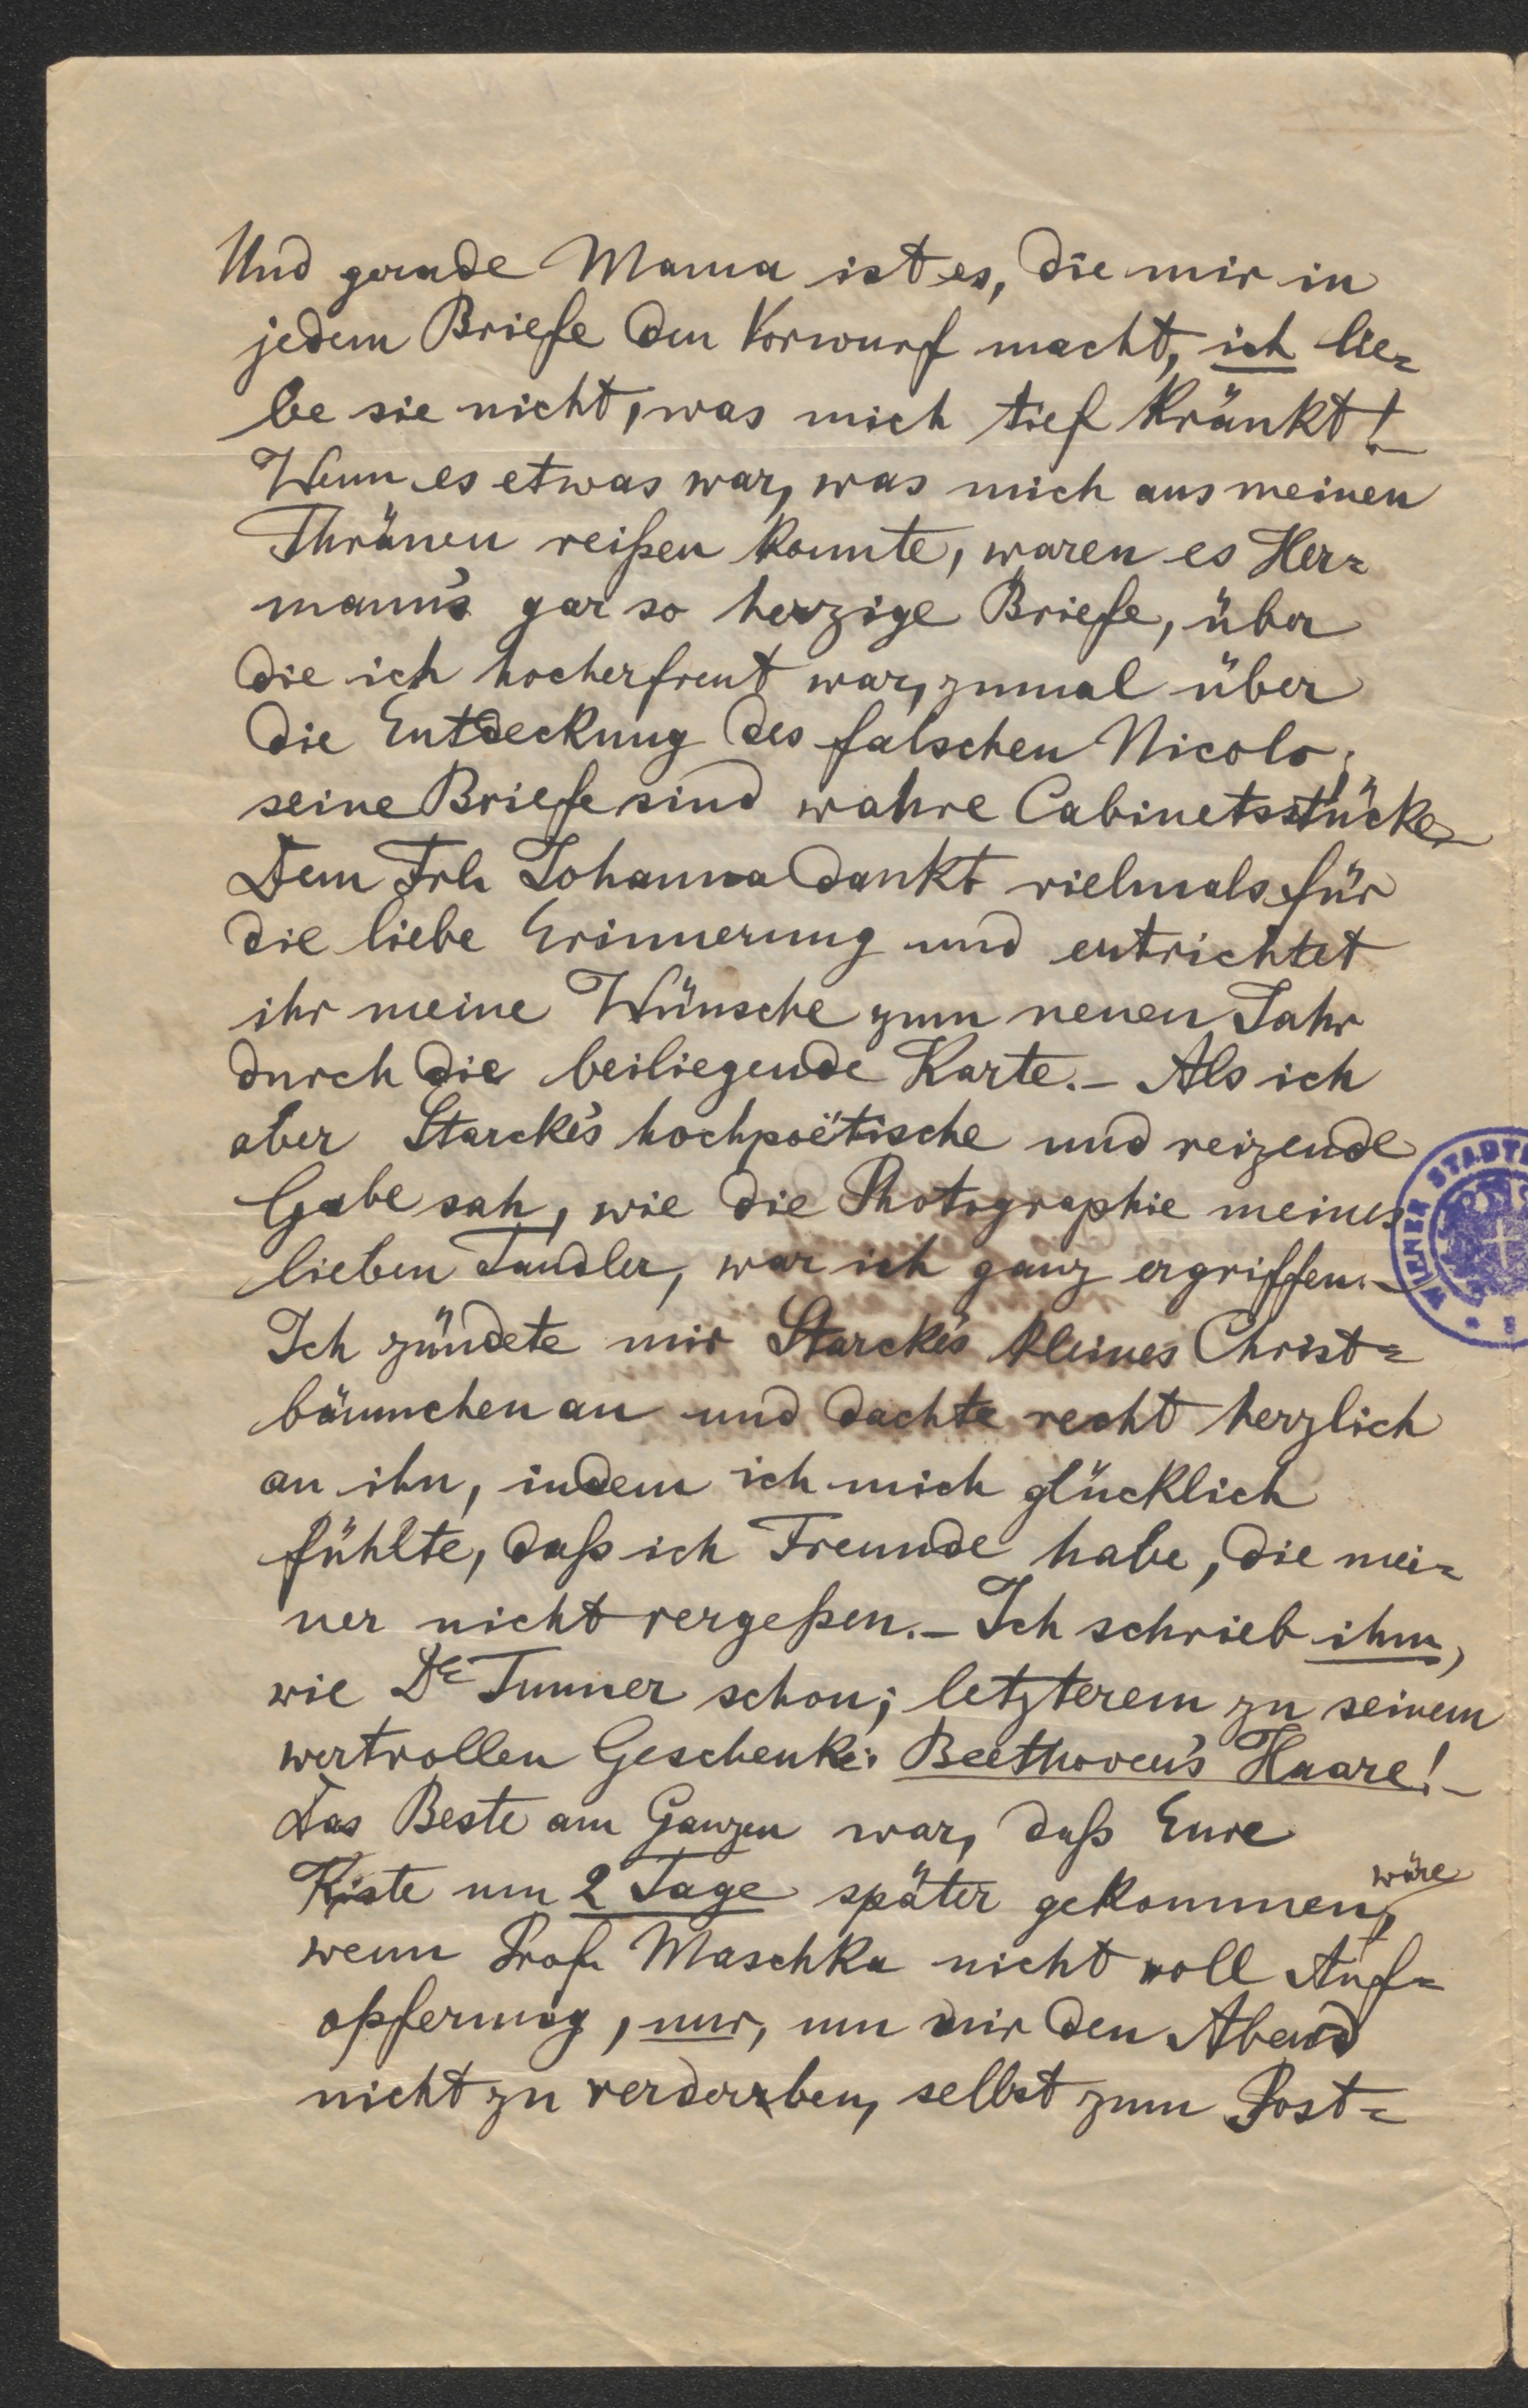 Und gerade Mama ist es, die mir in
jedem Briefe den Vorwurf macht, ich lie=
be sie nicht, was mich tief kränkt!–
Wenn es etwas war, was mich aus meinen
Thränen reißen konnte, waren es Her=
mann's gar so herzige Briefe, über
die ich hocherfreut war, zumal über
die Entdeckung des falschen Nicolo;
seine Briefe sind wahre Cabinetsstücke.–
Dem Frl. Johanna dankt vielmals für
die liebe Erinnerung und entrichtet
ihr meine Wünsche zum neuen Jahr
durch die beiliegende Karte.– Als ich
aber Starcke's hochpoëtische und reizende
Gabe sah, wie die Photographie meines
lieben Tandler, war ich ganz ergriffen.–
Ich zündete mir Starcke's kleines Christ=
bäumchen an und dachte recht herzlich
an ihn, indem ich mich glücklich
fühlte, daß ich Freunde habe, die mei=
ner nicht vergeßen.– Ich schrieb ihm,
wie Dr Tunner schon; letzterem zu seinem
wertvollen Geschenke: Beethoven's Haare!–
Das Beste am Ganzen war, daß Eure
Kiste um 2 Tage später gekommen wäre,
wenn Prof. Maschka nicht voll Auf=
opferung, nur, um mir den Abend
nicht zu verderben, selbst zum Post=
WIENER STADT